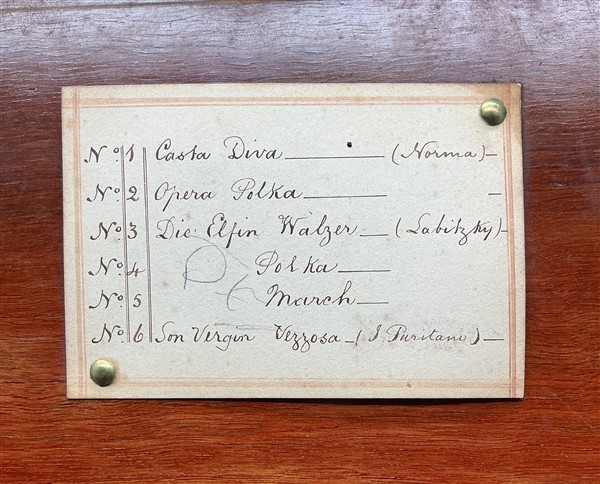 Nº 1 Casta Diva (Norma)
Nº 2 Opera Polka
Nº 3 Die Elfin Walzer (Labitzky)
Nº 4 Polka
Nº 5 March
Nº 6 Son Vergin Vezzosa (I Puritani)